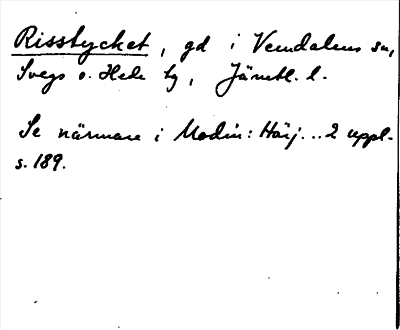 Risstycket, gd i Vemdalens sn,
Svegs o. Hede tg, Jämtl. l.
Se närmare i Modin: Härj... 2 uppl.
s. 189.